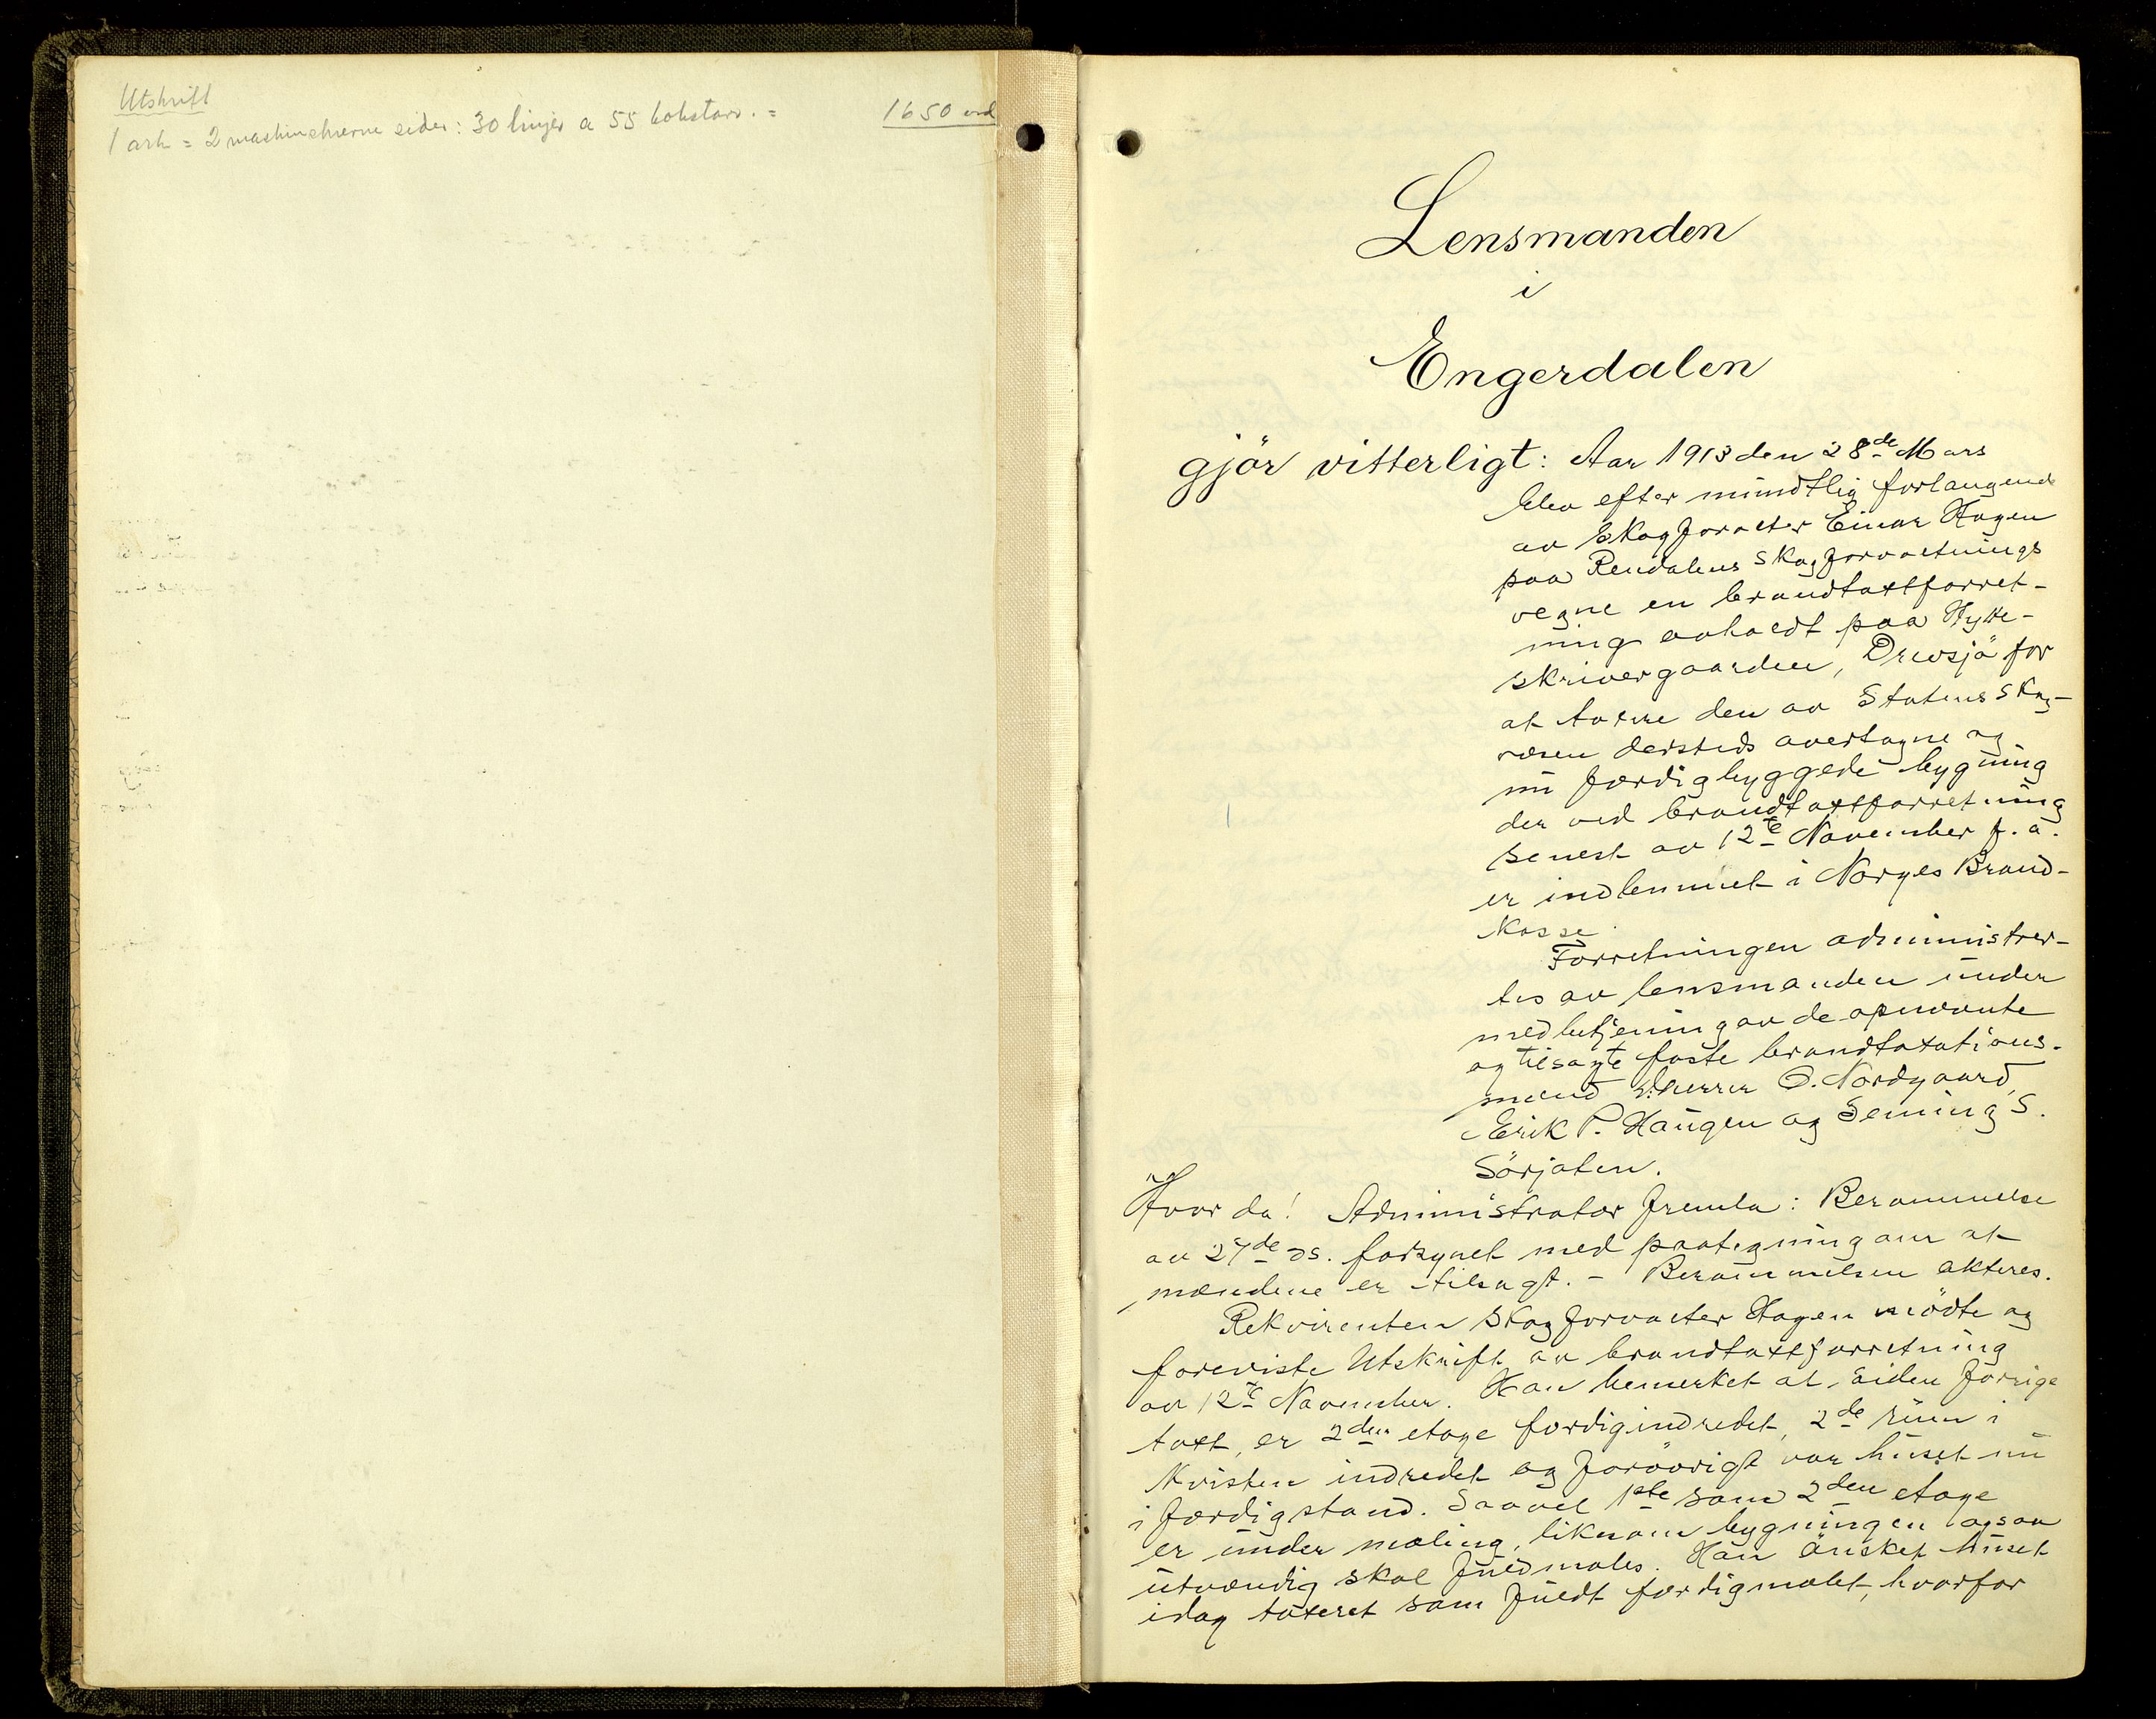 Utskrift
1 ark = 2 maskinskrevne sider: 30 linjer a 55 bokstav. =
1650 ord
Lensmanden
i
Engerdalen
gjör vitterligt: Aar 1913 den 28de Mars
blev efter mündtlig forlangende
av Skogforvalter Einar Hagen
paa Rendalens Skogforvaltnings
vegne en brandtaxtforret-
ning avholdt paa Hytte-
skrivergaarden, Drevsjö for
at taxere den av Statens Skog-
væsen dersteds overtagne og
nü færdigbyggede bygning
der ved brandtaxtforretning
senest av 12te November f. a.
er indlemmet i Norges Brand-
kasse.
Forretningen administrer-
tes av lensmanden ünder
medbetjening av de opnævnte
og tilsagte faste brandtaxations-
mænd O. Nordgaard,
Erik P. Haugen og Seming S.
Sörjoten.
Hvor da! Administrator fremla: Berammelse
av 27de ds. forsynet med paategning om at
mændene er tilsagt. - Berammelsen akteres.
Rekvirenten Skogforvalter Hagen mödte og
foreviste Utskrift av brandtaxtforretning
av 12te November. Han bemerket at siden forrige
taxt, er 2den etage færdigindredet, 2de rüm i
Kvisten indredet og forövrigt var hüset nü
i færdig stand. Saavel 1ste som 2den etage
er ünder maling, liksom bygningen ogsaa
ütvændig skal füldmales. Han önsket hüset
idag taxeret som füldt færdigmalet, hvorfor